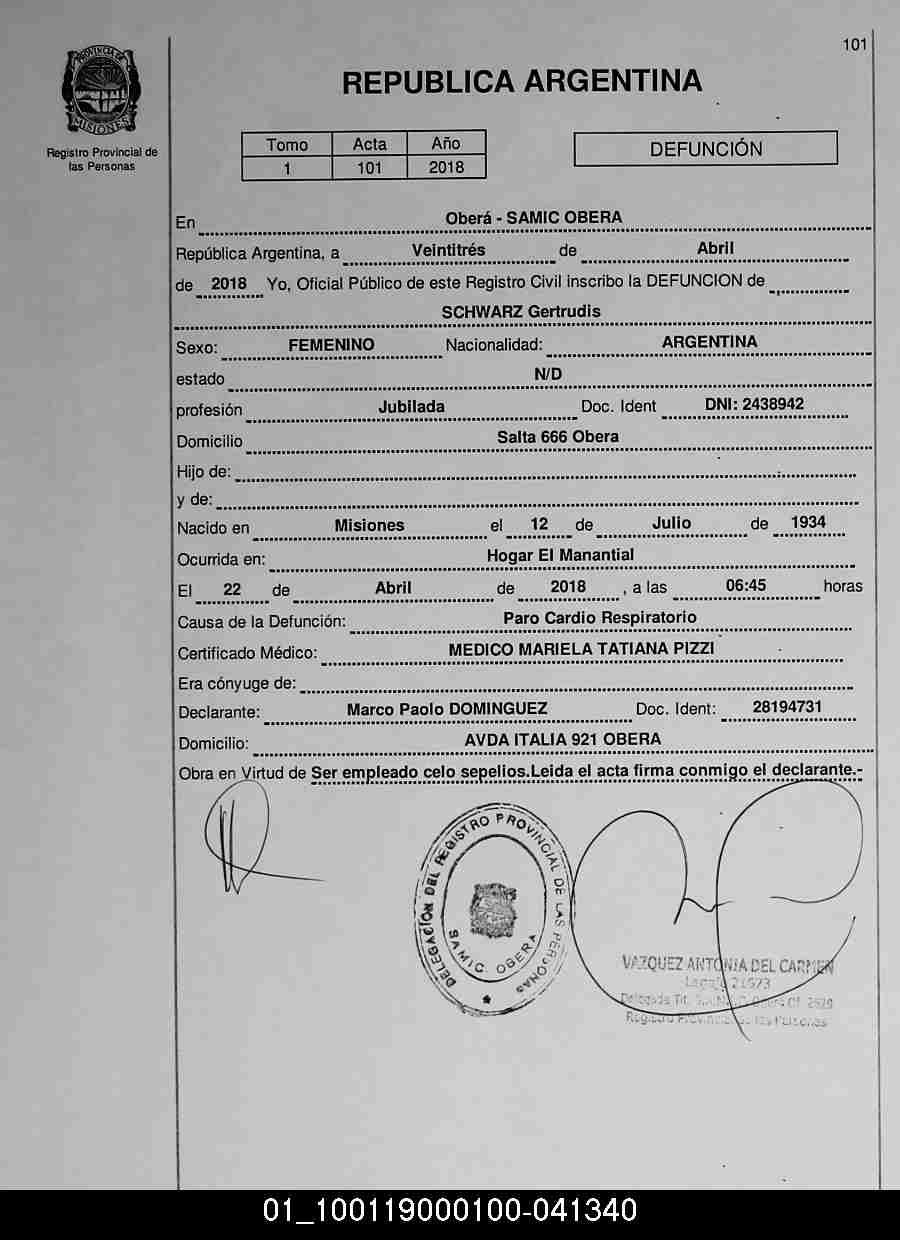 101
PROVINCIA DE
MISIONES
Registro Provincial de
las Personas
REPUBLICA ARGENTINA
Tomo Acta Año
1 101 2018
DEFUNCIÓN
En Oberá - SAMIC OBERA
República Argentina, a Veintitrés de Abril
de 2018 Yo, Oficial Público de este Registro Civil inscribo la DEFUNCION de
SCHWARZ Gertrudis
Sexo: FEMENINO Nacionalidad: ARGENTINA
estado N/D
profesión Jubilada Doc. Ident DNI: 2438942
Domicilio Salta 666 Obera
Hijo de:
y de:
Nacido en Misiones el 12 de Julio de 1934
Ocurrida en: Hogar El Manantial
El 22 de Abril de 2018 , a las 06:45 horas
Causa de la Defunción: Paro Cardio Respiratorio
Certificado Médico: MEDICO MARIELA TATIANA PIZZI
Era cónyuge de:
Declarante: Marco Paolo DOMINGUEZ Doc. Ident: 28194731
Domicilio: AVDA ITALIA 921 OBERA
Obra en Virtud de Ser empleado celo sepelios.Leida el acta firma conmigo el declarante.-
DELEGACIÓN DEL REGISTRO PROVINCIAL DE LAS PERSONAS
SAMIC. OBERA
VAZQUEZ ANTONIA DEL CARMEN
Registro Las Personas
01_100119000100-041340